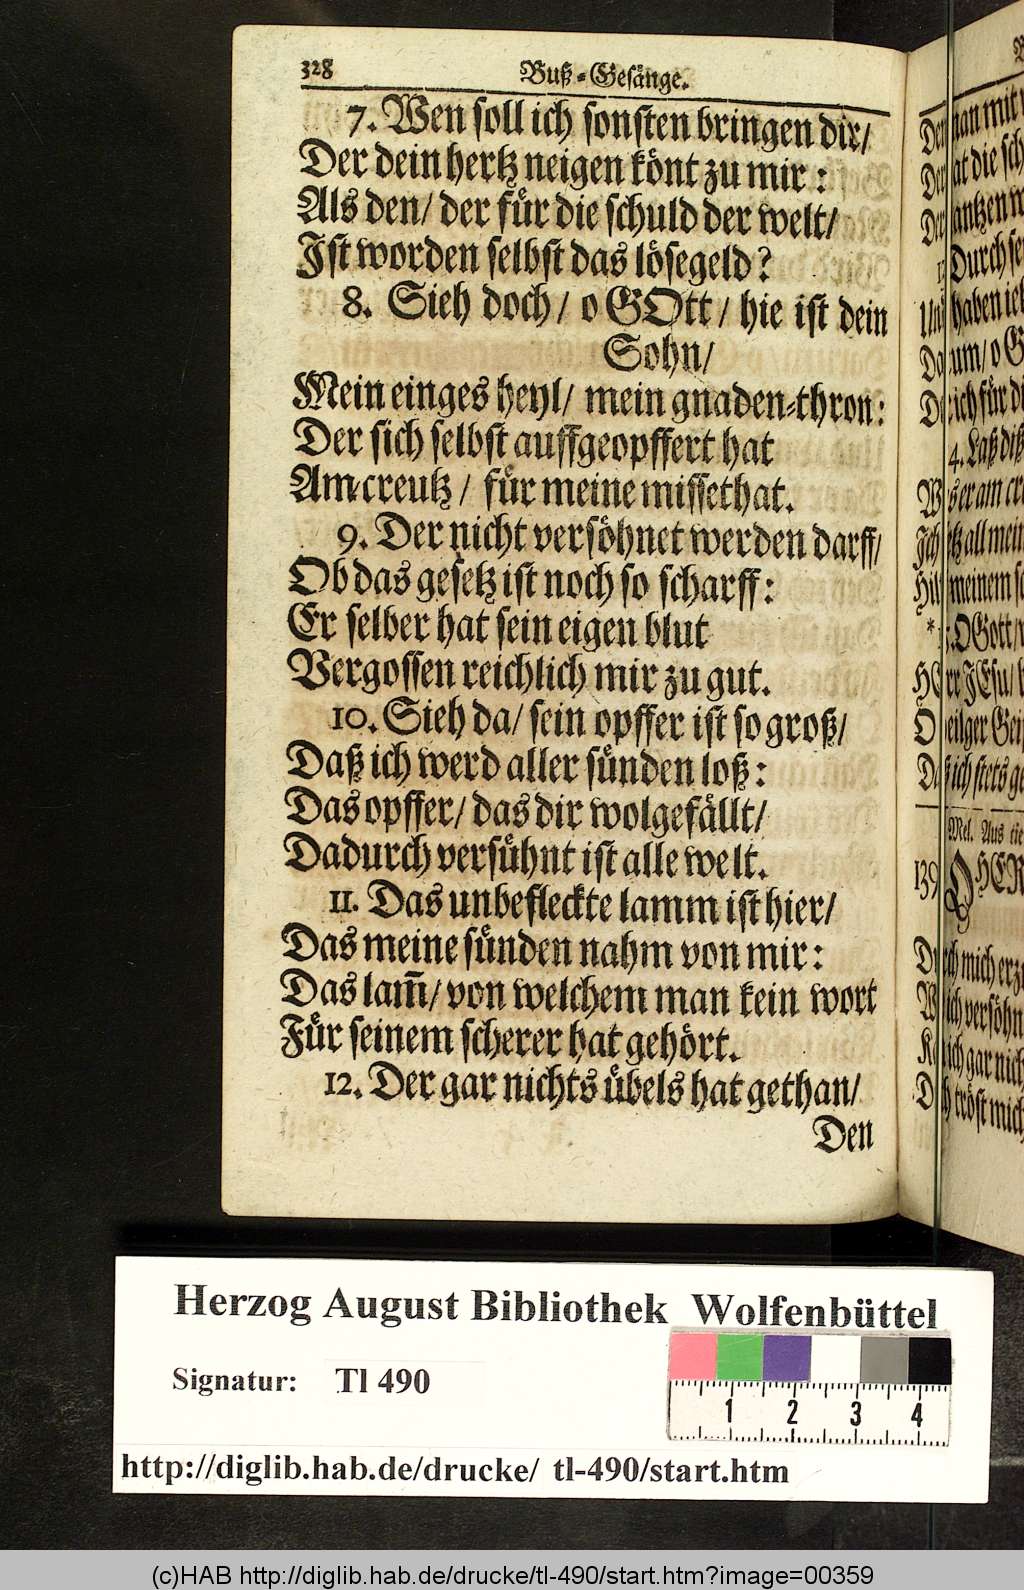 328 Buß-Gesänge.
7. Wen soll ich sonsten bringen dir/
Der dein hertz neigen könt zu mir:
Als den/ der für die schuld der welt/
Ist worden selbst das lösegeld?
8. Sieh doch/ o GOtt/ hie ist dein
Sohn/
Mein einges heyl/ mein gnaden-thron:
Der sich selbst auffgeopffert hat
Am creutz/ für meine missethat.
9. Der nicht versöhnet werden darff/
Ob das gesetz ist noch so scharff:
Er selber hat sein eigen blut
Vergossen reichlich mir zu gut.
10. Sieh da/ sein opffer ist so groß/
Daß ich werd aller sünden loß:
Das opffer/ das dir wolgefällt/
Dadurch versühnt ist alle welt.
11. Das unbefleckte lamm ist hier/
Das meine sünden nahm von mir:
Das lam̃/ von welchem man kein wort
Für seinem scherer hat gehört.
12. Der gar nichts übels hat gethan/
Den
man mit
die
Durch
haben
um/ o
ich für
4. Laß diß
er am
all
meinem
OGott/
JEsu/
ich stets
Mel. Aus
139
HER
mich
ich gar
tröst mich
Herzog August Bibliothek Wolfenbüttel
Signatur: Tl 490
1 2 3 4
http://diglib.hab.de/drucke/ tl-490/start.htm
(c)HAB http://diglib.hab.de/drucke/tl-490/start.htm?image=00359